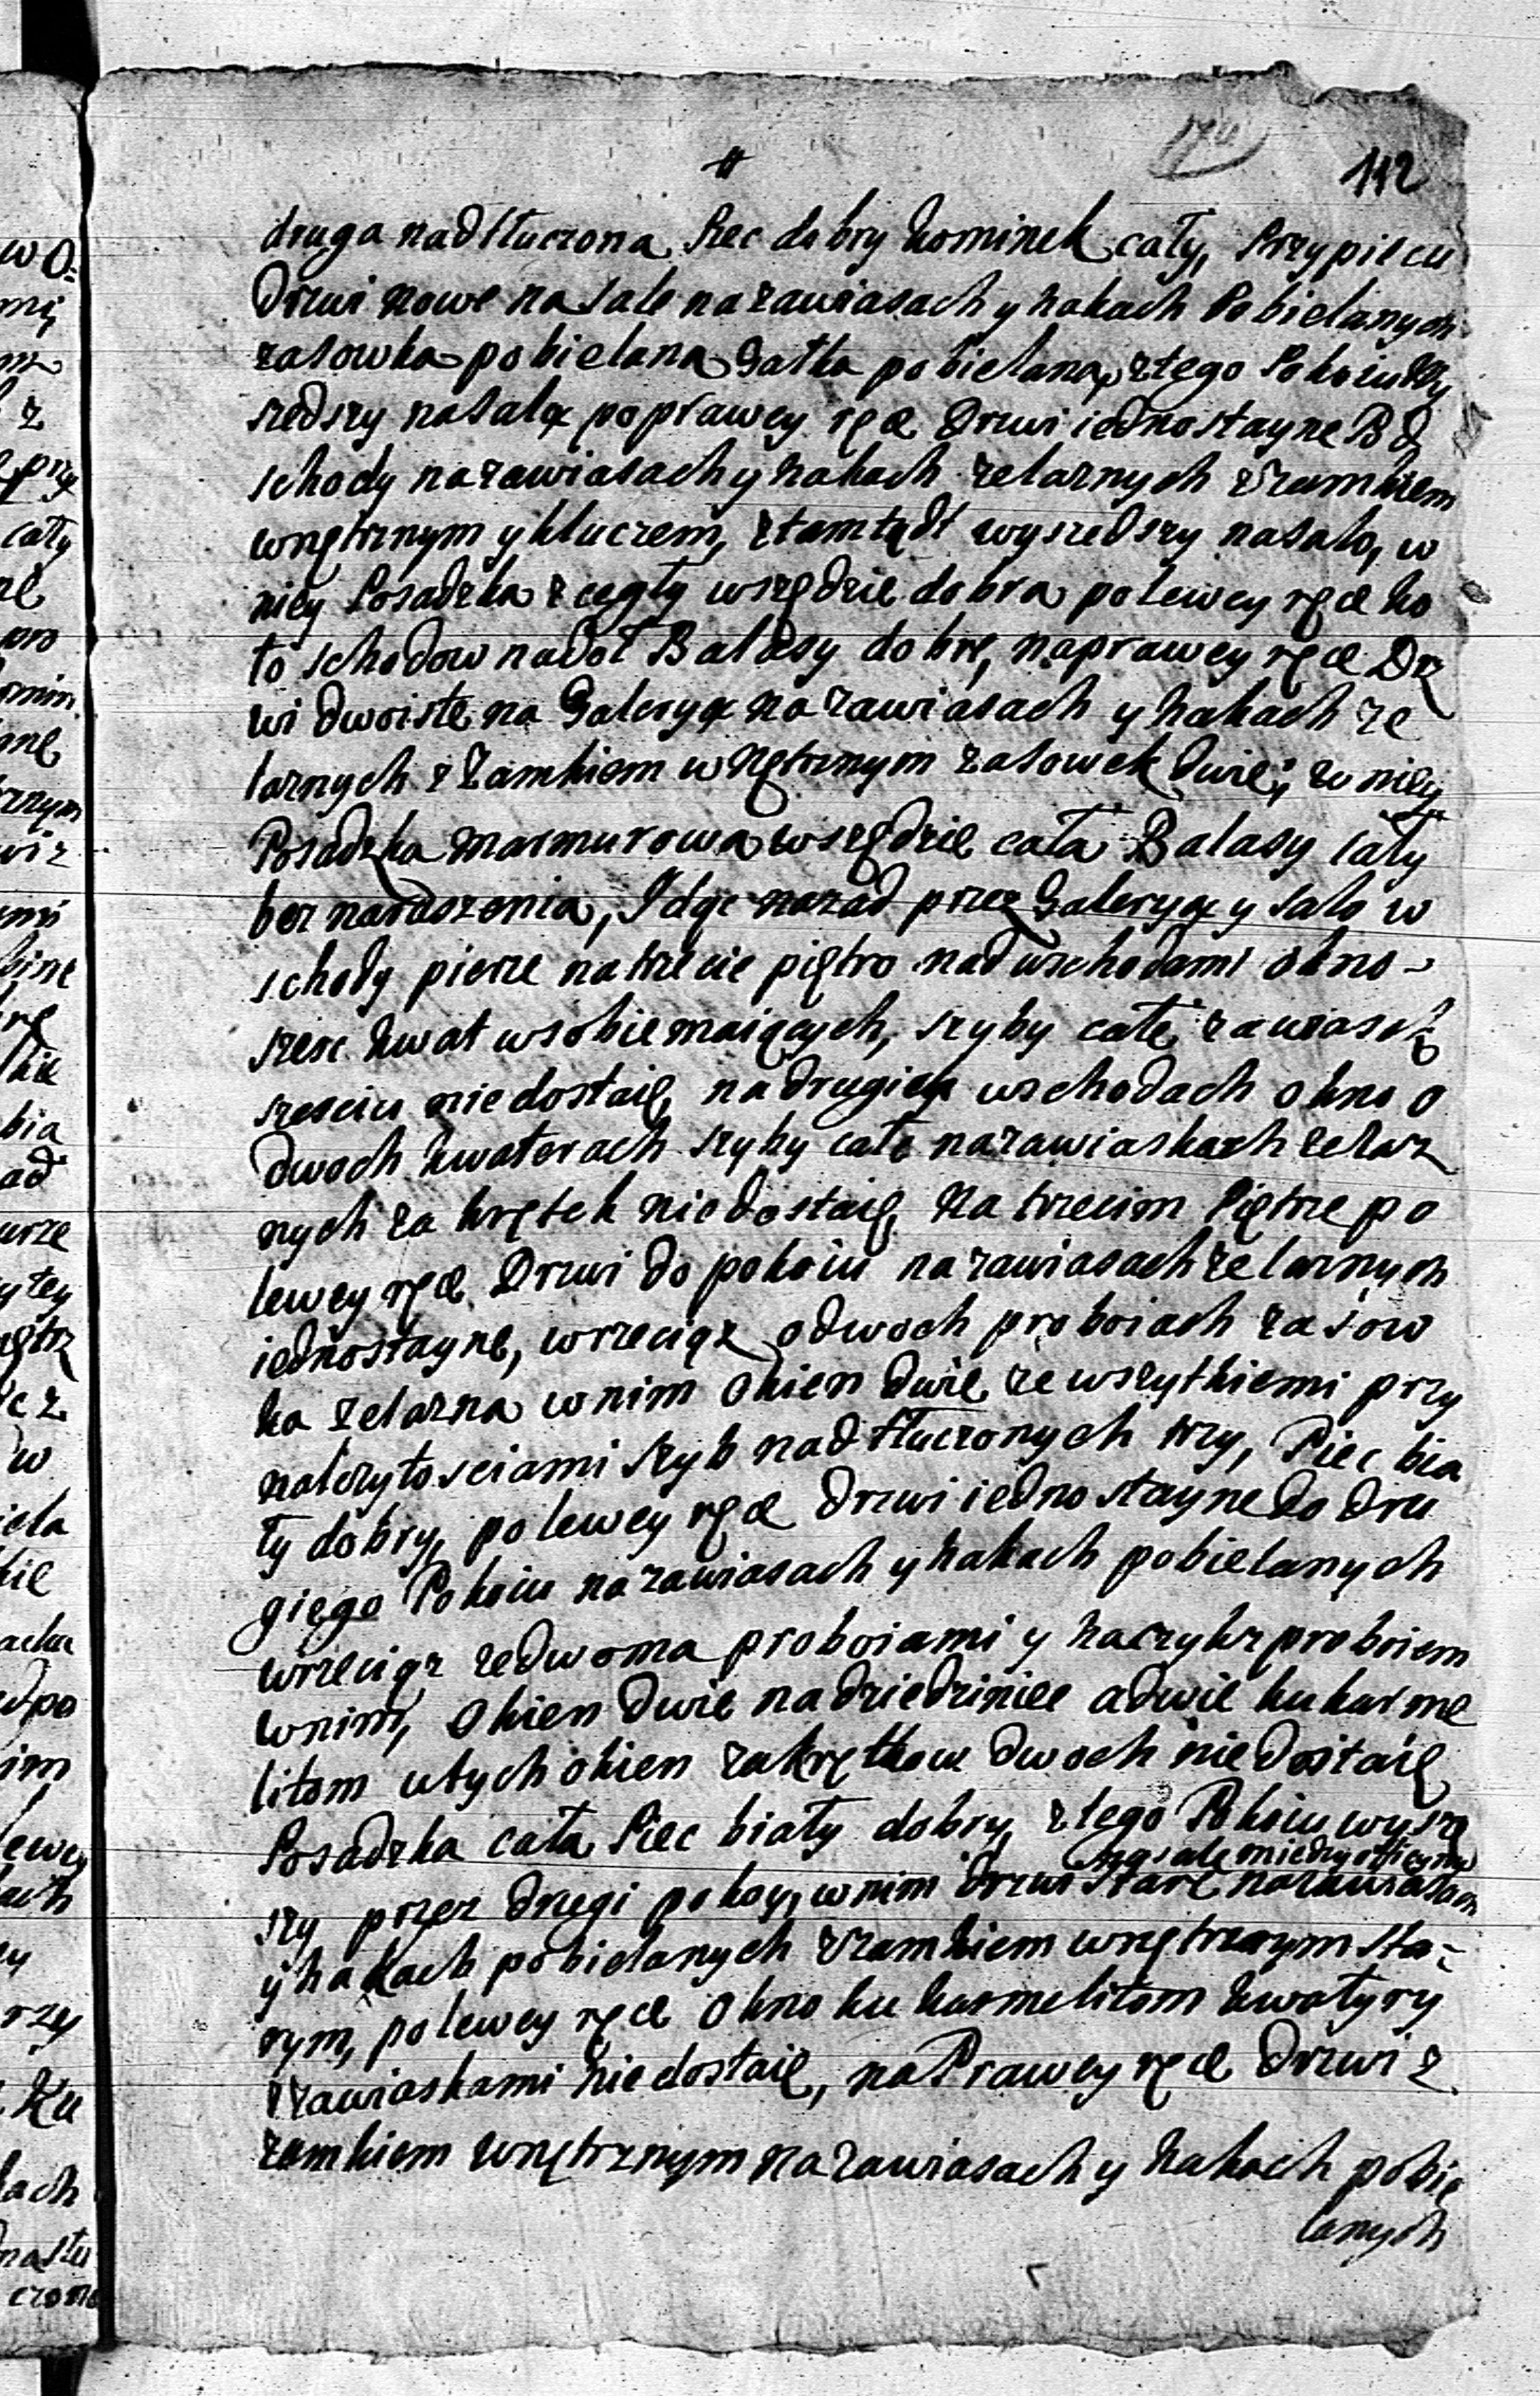 112
druga nadtłuczona, Piec dobry kominek cały, Przypiecu
Drzwi nowe na Sale na zawiasach y hakach Pobielanych
zasowka pobielana Gałka pobielana, z tego Pokoiu Wy
szedszy na Salą po prawey ręce Drzwi iednostayne
schody na zawiasach y hakach zelaznych z zamkiem
wnętrznym y kluczem, ztamtądt wyszedszy na salo, w
niey Posadzka z cegły wszędzie dobra po lewey ręce ko
ło schodow na doł Balasy dobre, na prawey ręce Drz
wi dwoiste na Galeryą na zawiasach y hakach ze
laznych z Zamkiem wnętrznym zasowek dwie, w niey
Posadzka marmurowa wszędzie cała Balasy cały
bez naruszenia, Idąc nazad przez Galeryą y salo w
schody pierze na trzecie piętro nad wschodami okno
szesc kwat w sobie maiących, szyby całe, zawiasek
szesciu niedostaie, na drugich wschodach okno o
dwoch kwaterach szyby całe na zawiaskach zelaz
nych zakrętek niedostaie, Na trzecim Piętrze po
lewey ręce Drzwi do pokoiu na zawiasach zelaznych
iednostayne, wrzeciąz o dwoch proboiach zasow
ka zelazna w nim Okien dwie ze wszytkiemi przy
nalezytosciami Szyb nadtłuczonych trzy, Piec bia
ły dobry, po lewey ręce drzwi iednostayne do dru
giego Pokoiu na zawiasach y hakach pobielanych
wrzeciąz ze dwoma proboiami y haczyk z proboiem
w nim, Okien dwie na dziedziniec a dwie ku karme
litom u tych okien zakrętkow dwoch niedostaie
Posadzka cała Piec biały dobry, z tego Pokoiu wysze
na sale miedzy officyny
szy przez drugi pokoy, w nim drzwi stare na zawiasach
y hakach pobielanych z zamkiem wnętrznym sta-
rym, po lewey ręce Okno ku karmelitom kwatyry
z zawiaskami niedostaie, na Prawey ręce Drzwi z
zamkiem wnętrznym na zawiasach y hakach pobie
lanych